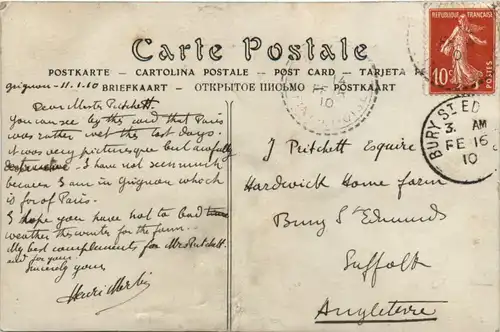 Carte Postale
POSTKARTE - CARTOLINA POSTALE - POST CARD - TARJETA
BRIEFKAART - ОТКРЫТОЕ ПИСЬМО - POSTKAART
REPUBLIQUE FRANÇAISE
10c
POSTES
BURY ST. ED
3. AM
FE 16
10
Grignon - 11.2.10
Dear Master Pritchett
You can see by this card that Paris
was rather wet the last days.
It was very picturesque but awfully
destructive. I have not seen much
because I am in Grignon which
is far of Paris.
I hope you have not to bad
weather this winter for the farm.
My best complements for Mrs Pritchett
and for you.
Sincerly yours
Henri
J Pritchett Esquire
Hardwick Home farm
Bury St Edmunds
Suffolk
Angleterre